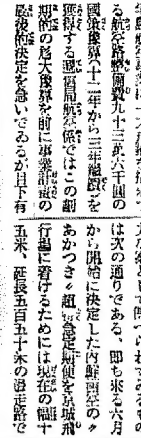 る航空路整備費九十三萬六千圓の
國策豫算（十二年から三年繼續）を
獲得する遞信局航空係ではこの劃
期的の尨大豫算を前に事業計畫の
最後的決定を急いでゐるが目下有
は次の通りである、即ち來る六月
から開始に決定した内鮮滿空の〃
あかつき〃超特急定期便を京城飛
行場に着けるためには現在の幅十
五米、延長五百五十米の滑走路で